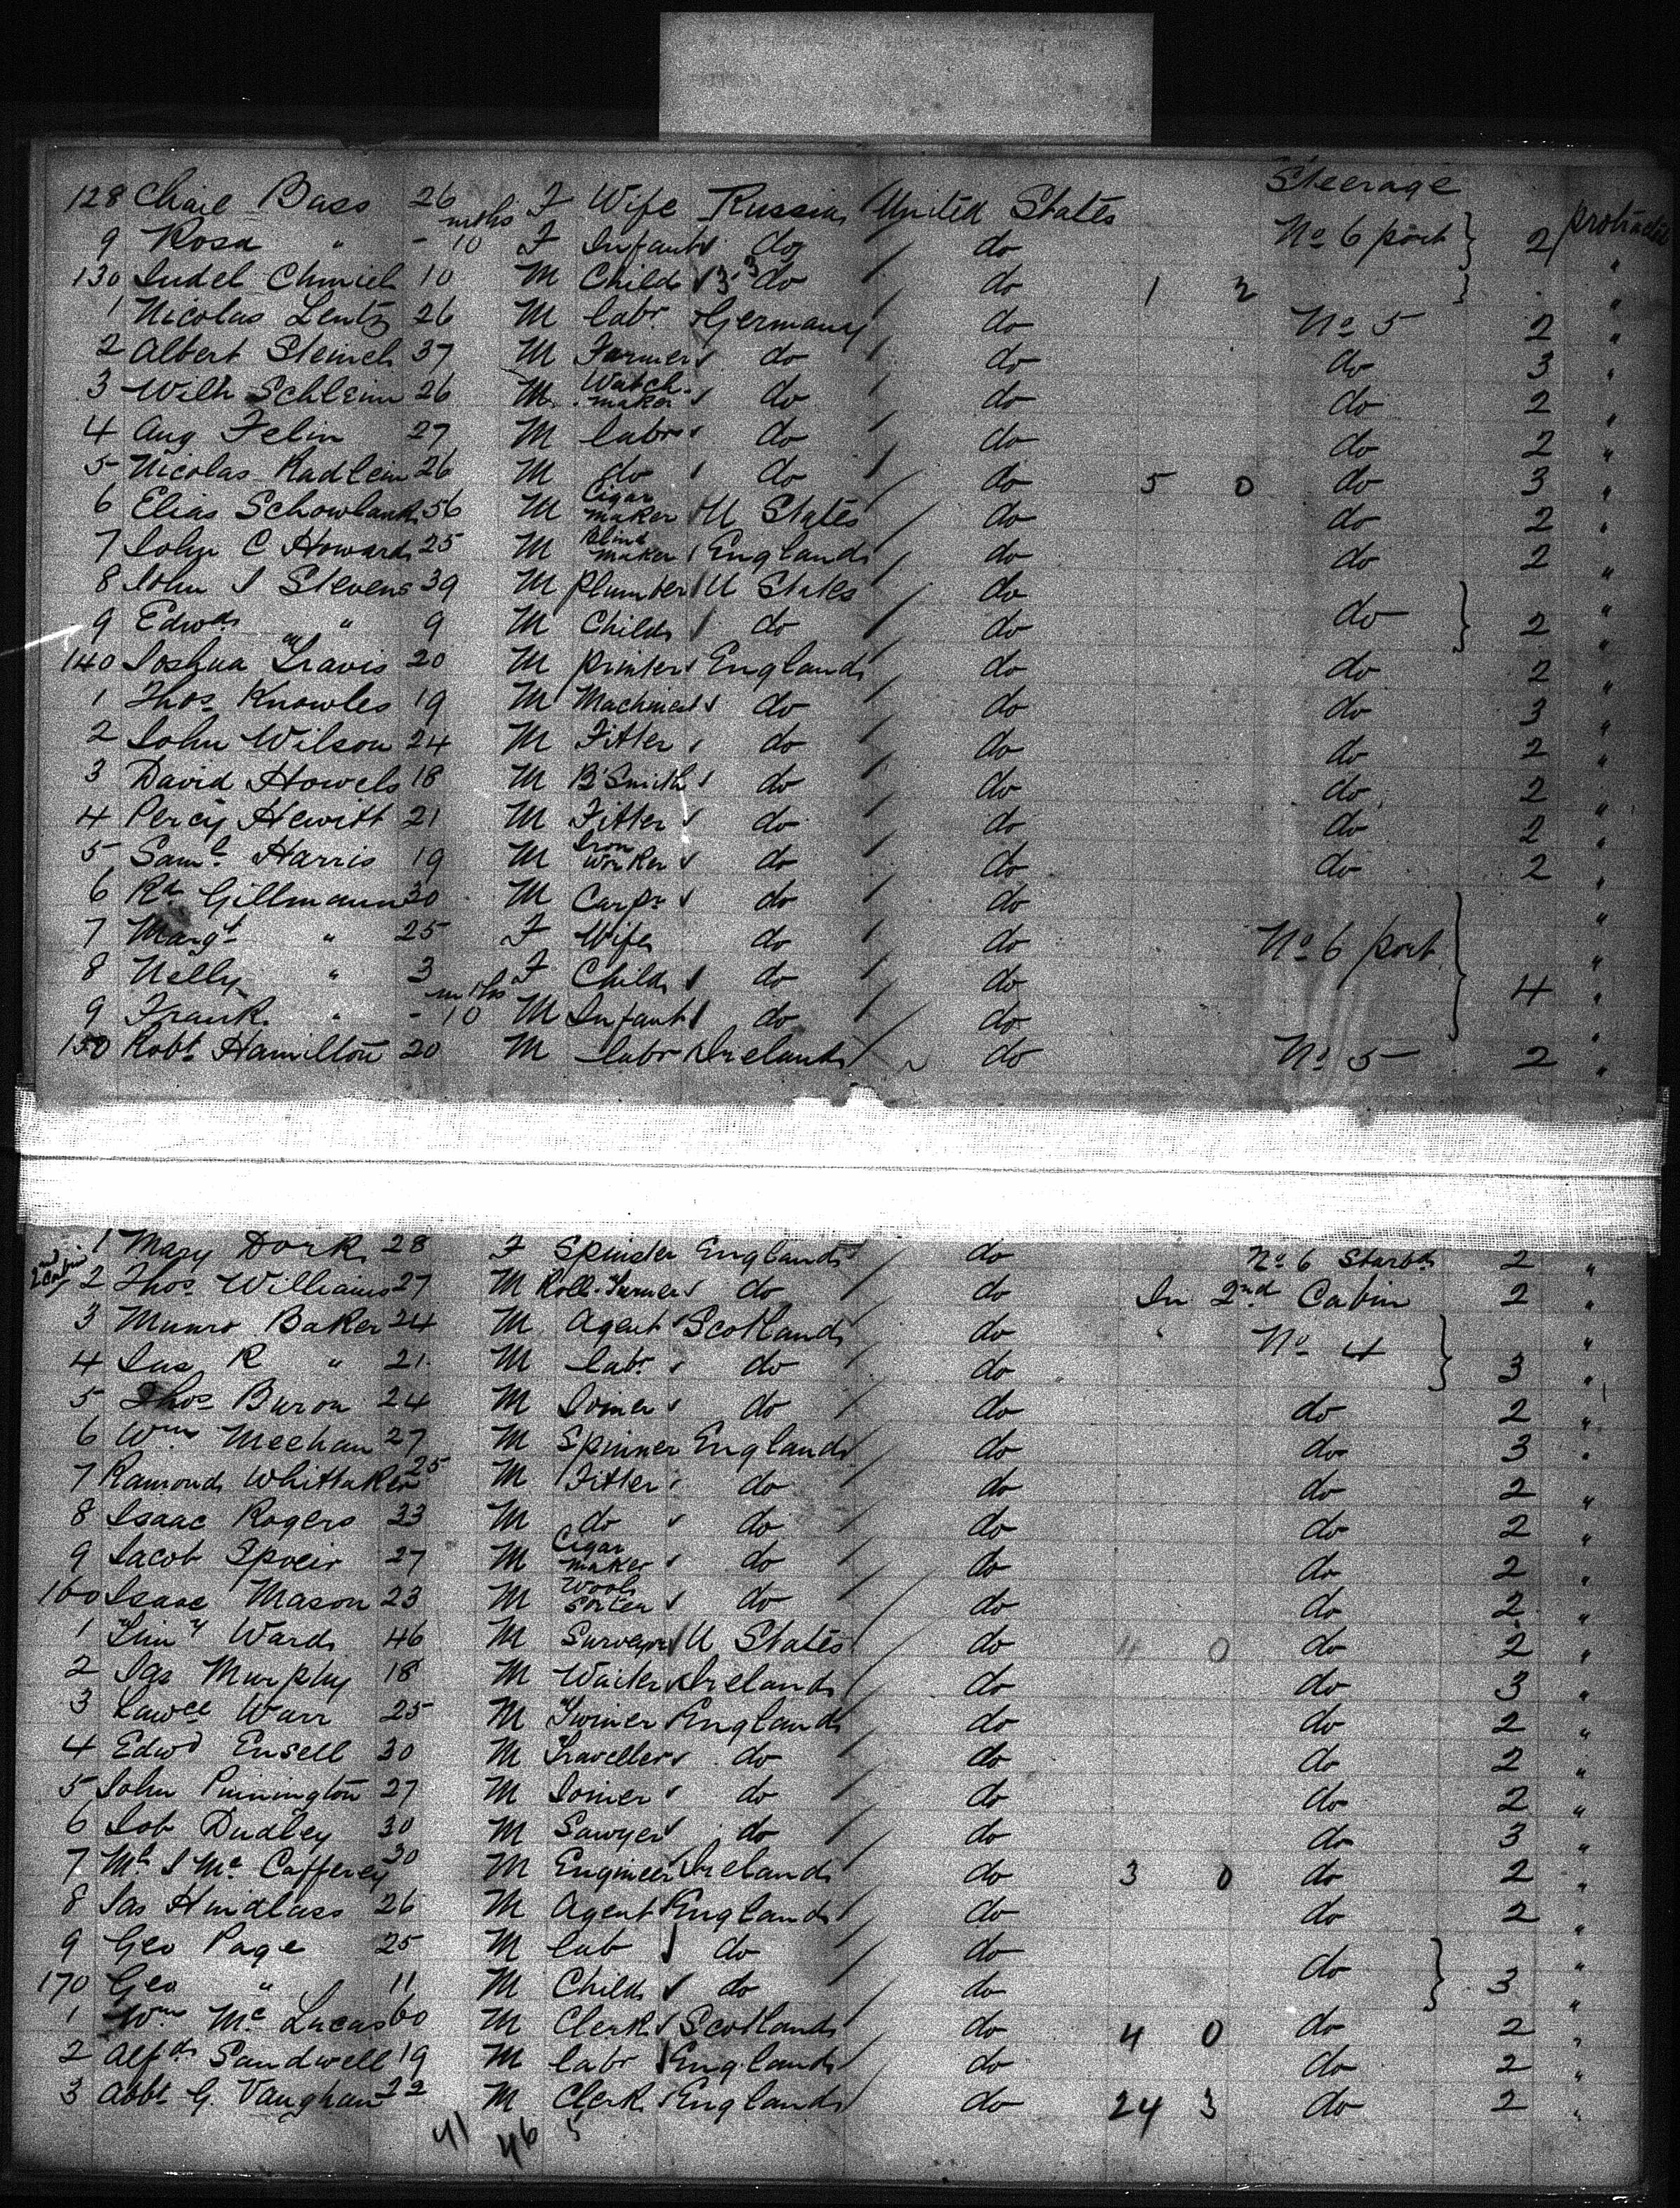 Steerage
128 Chaie Bass 26 F Wife Russia United States protracted
9 Rosa " - mths 10 F Infant do do No 6 port 2 "
130 Judel Chmiel 10 M Child 3.3 do do 1 2 "
1 Nicolas Lentz 26 M labr. Germany do No 5 2 "
2 Albert Steinch 37 M Farmer do do do 3 "
3 Wilh Schleim 26 M Watch-maker do do do 2 "
4 Aug Felin 27 M labr do do do 2 "
5 Nicolas Radlein 26 M do do do 5 0 do 3 "
6 Elias Schowlank 56 M Cigar maker U States do do 2 "
7 John C Howard 25 M Blind maker England do do 2 "
8 John J Stevens 39 M plumber U States do "
9 Edwd " 9 M Child do do do 2 "
140 Joshua Travis 20 M printer England do do 2 "
1 Thos Knowles 19 M Machinest do do do 3 "
2 John Wilson 24 M Fitter do do do 2 "
3 David Howels 18 M B'Smith do do do 2 "
4 Percy Hewitt 21 M Fitter do do do 2 "
5 Saml. Harris 19 M Iron worker do do do 2 "
6 Rd Gillmann 30 M Carpr do do "
7 Margt " 25 F Wife do do No 6 port "
8 Nelly " 3 F Child do do 4 "
9 Frank " - mths 10 M Infant do do "
150 Robt Hamilton 20 M labr Ireland do No 5 2 "
1 Mary Dork 28 F Spinster England do No 6 Starbd 2 "
2nd Cabin 2 Thos Williams 27 M Roll-Turner do do In 2nd Cabin 2 "
3 Munro Baker 24 M Agent Scotland do No 4 "
4 Jas R " 21 M labr. do do 3 "
5 Thos Buron 24 M Joiner do do do 2 "
6 Wm Meehan 27 M Spinner England do do 3 "
7 Ramond Whittaker 25 M Fitter do do do 2 "
8 Isaac Rogers 33 M do do do do 2 "
9 Jacob Spoeir 27 M Cigar maker do do do 2 "
160 Isaac Mason 23 M Wool sorter do do do 2 "
1 Timy Ward 46 M Surveyor U States do 11 0 do 2 "
2 Jas Murphy 18 M Waiter Ireland do do 3 "
3 Lawce Warr 25 M Twiner England do do 2 "
4 Edwd Ensell 30 M Traveller do do do 2 "
5 John Pinnington 27 M Joiner do do do 2 "
6 Job Dudley 30 M Sawyer do do do 3 "
7 Ml J Mc Cafferey 30 M Engineer Ireland do 3 0 do 2 "
8 Jas Hindlass 26 M Agent England do do 2 "
9 Geo Page 25 M lab do do do "
170 Geo " 11 M Child do do 3 "
1 Wm Mc Lucas 60 M Clerk Scotland do 4 0 do 2 "
2 Alfd Sandwell 19 M labr England do do 2 "
3 Abbt G. Vaughan 22 M Clerk England do 24 3 do 2 "
41 46 5